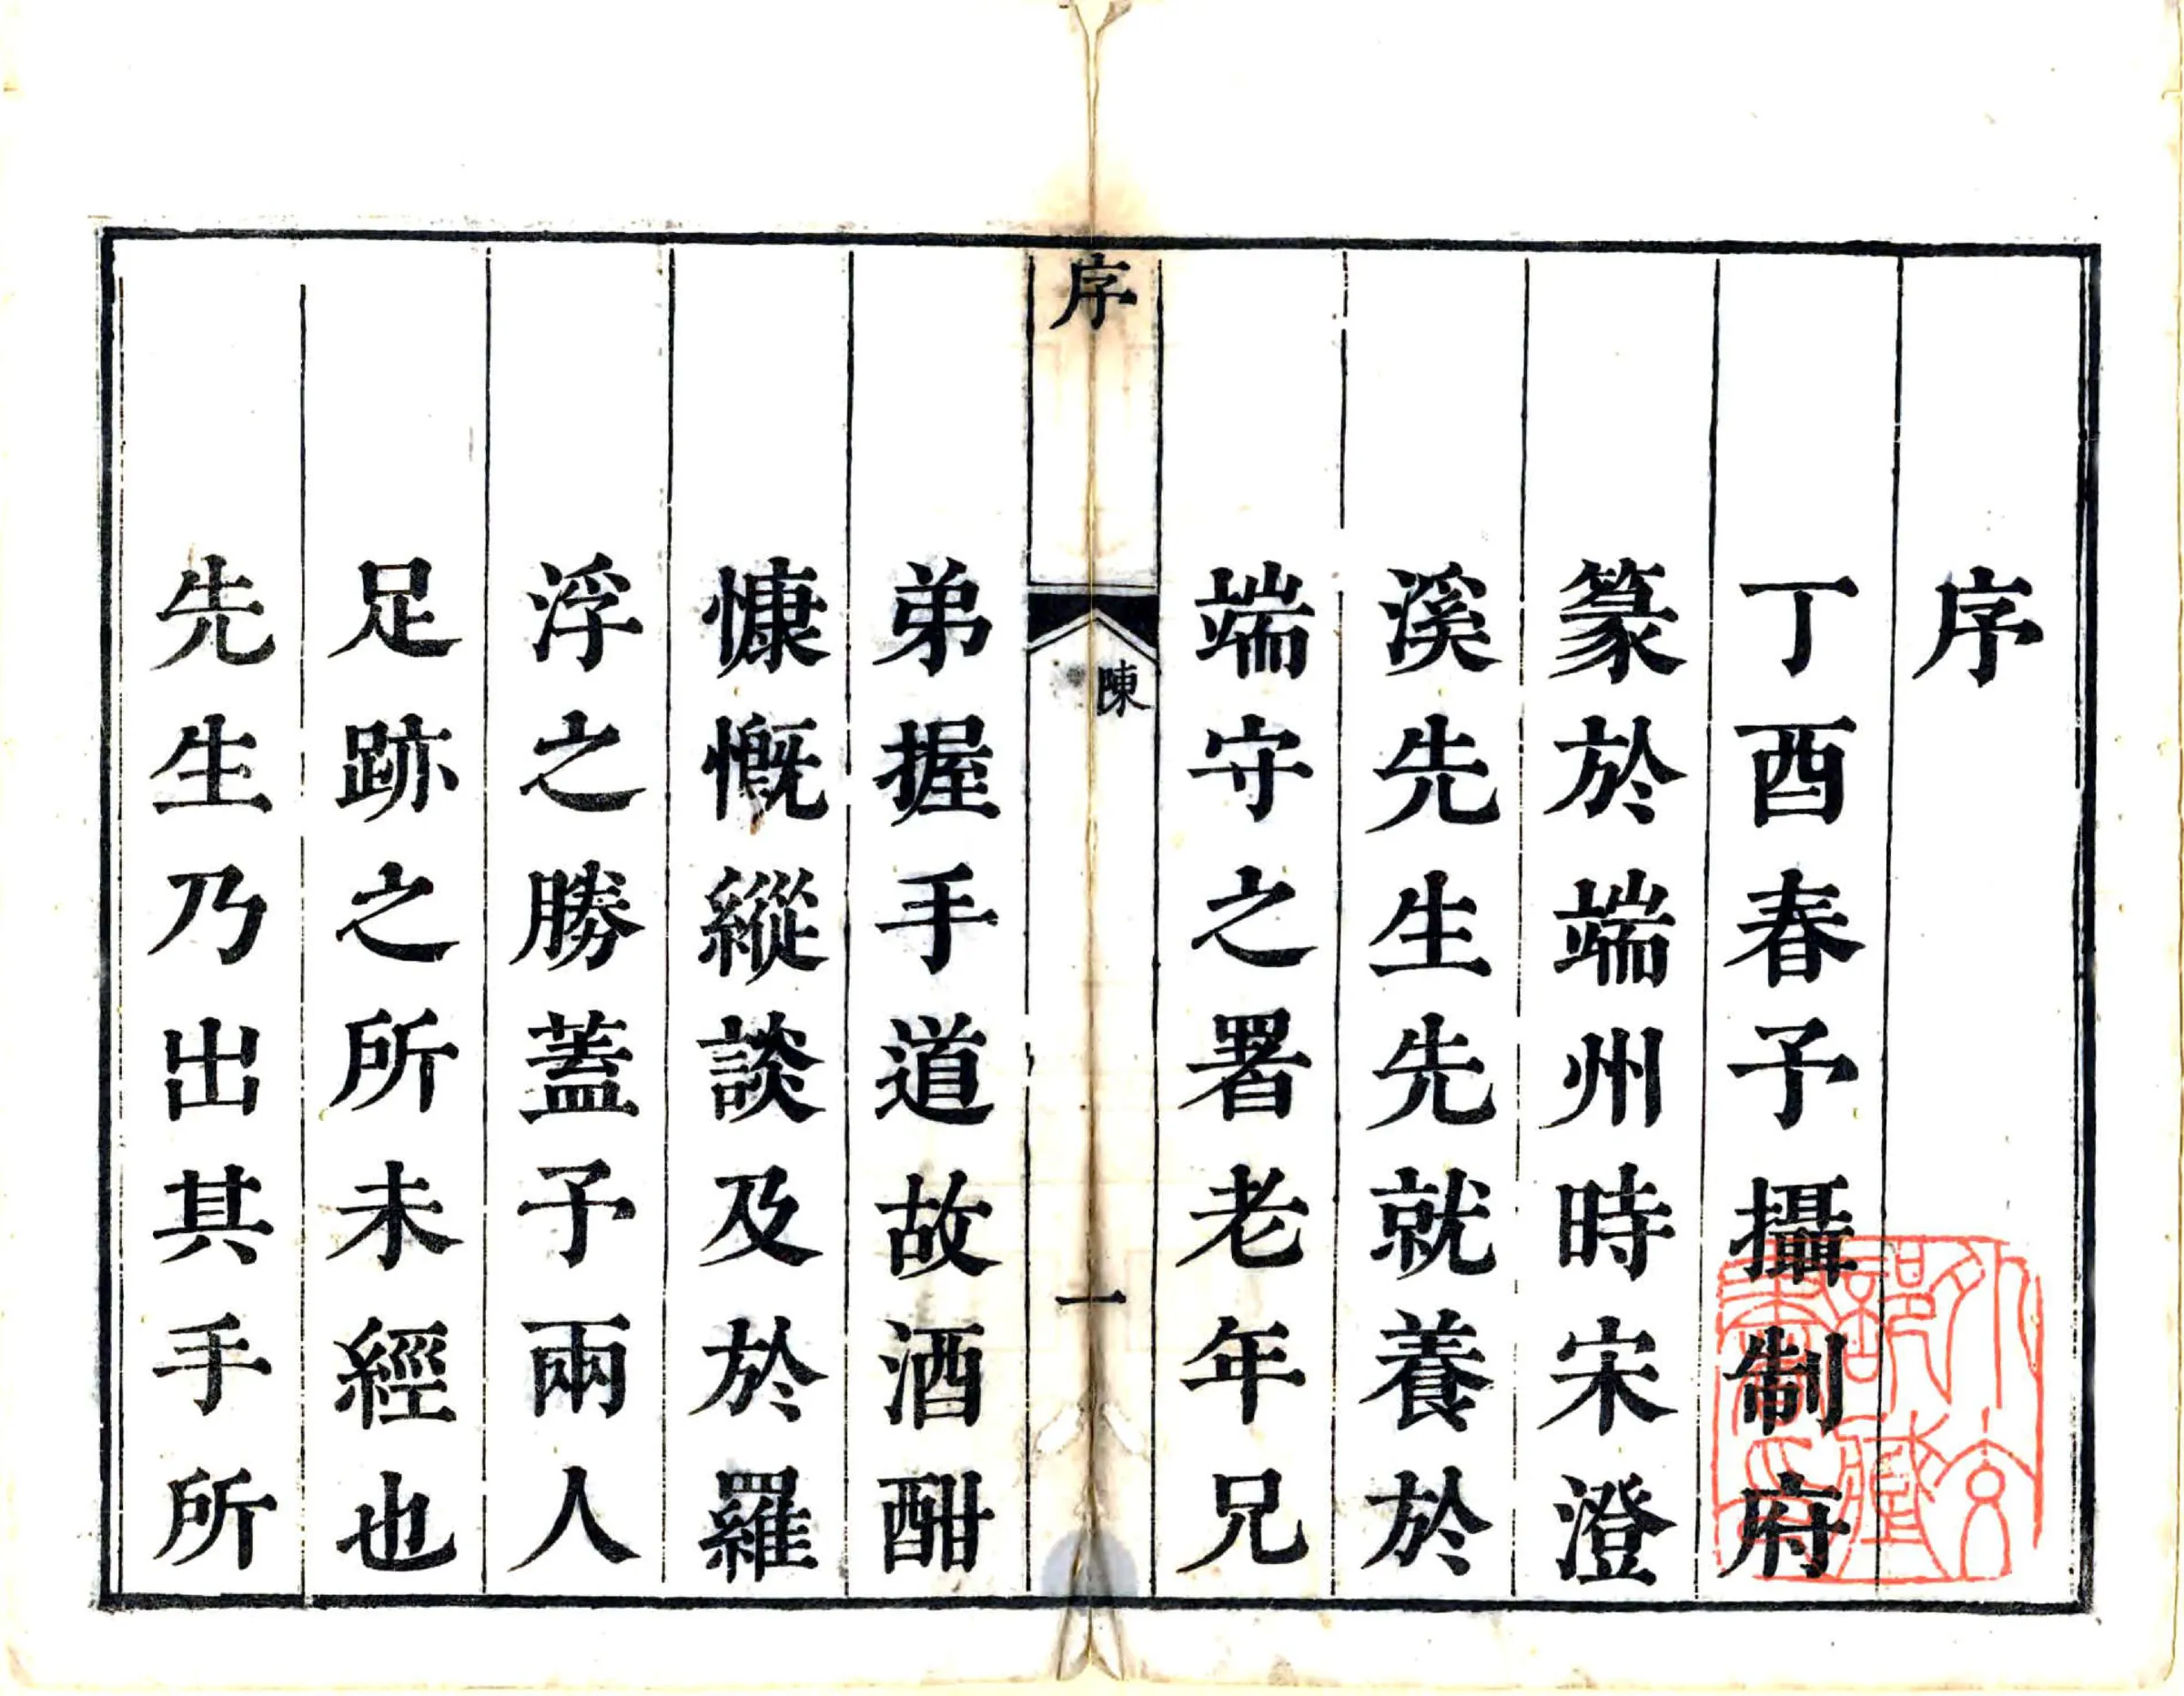 序
丁酉春予攝制府
篆於端州時宋澄
溪先生先就養於
端守之署老年兄
序
陳
一
弟握手道故酒酣
慷慨縱談及於羅
浮之勝蓋予兩人
足跡之所未經也
先生乃出其手所